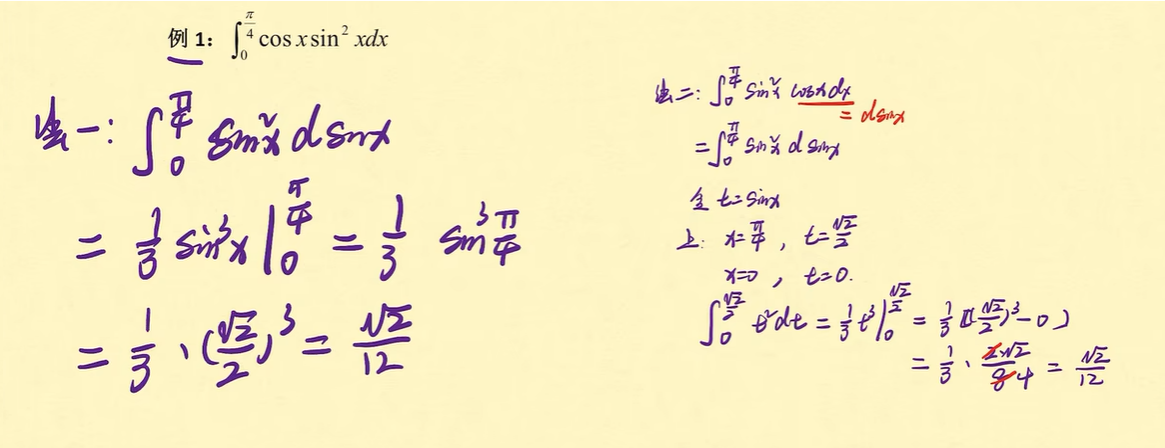 例 1： ∫₀^{π/4} cos x sin² xdx
法一: ∫₀^{π/4} sin²x d sinx
= 1/3 sin³x |₀^{π/4} = 1/3 sin³ π/4
= 1/3 · (√2/2)³ = √2/12
法二: ∫₀^{π/4} sin²x cosx dx
= d sinx
= ∫₀^{π/4} sin²x d sinx
令 t = sinx
上: x = π/4 , t = √2/2
x=0 , t=0.
∫₀^{√2/2} t²dt = 1/3 t³ |₀^{√2/2} = 1/3 [(√2/2)³ - 0)
= 1/3 · 2√2/8 4 = √2/12